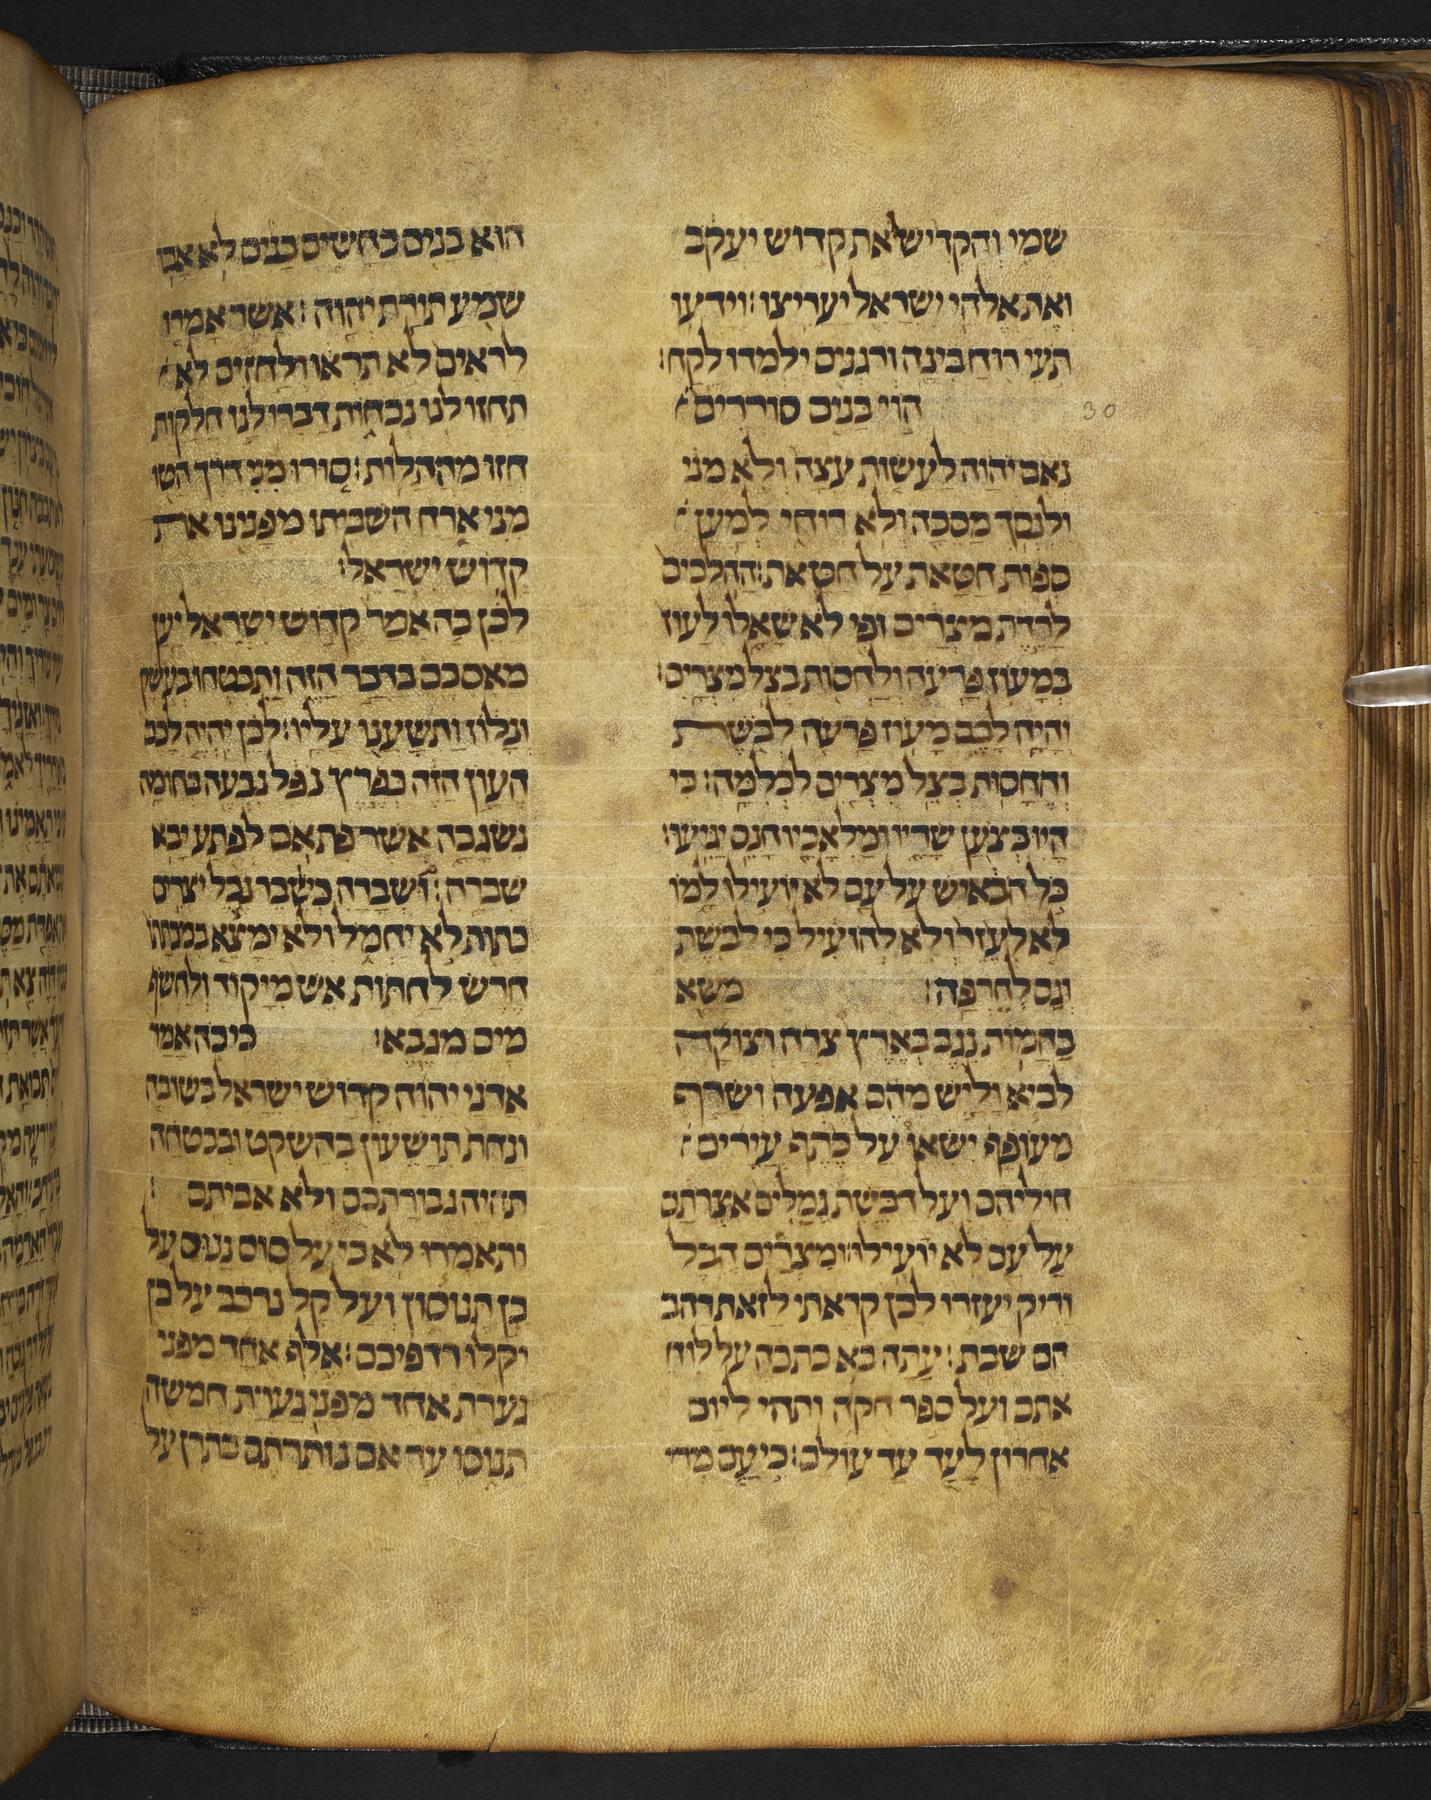 שמי והקדישו את קדוש יעקב
ואת אלהי ישראל יעריצו : וידעו
תעי רוח בינה ורגנים ילמדו לקח :
הוי בנים סוררים
30
נאם יהוה לעשות עצה ולא מני
ולנסך מסכה ולא רוחי למען
ספות חטאת על חטאת : ההלכים
לרדת מצרים ופי לא שאלו לעוז
במעוז פרעה ולחסות בצל מצרים :
והיה לכם מעוז פרעה לבשת
והחסות בצל מצרים לכלמה : כי
היו בצען שריו ומלאכיו חנס יגיעו :
כל הבאיש על עם לא יועילו למו
לא לעזר ולא להועיל כי לבשת
וגם לחרפה : משא
בהמות נגב בארץ צרה וצוקה
לביא וליש מהם אפעה ושרף
מעופף ישאו על כתף עירים
חיליהם ועל דבשת גמלים אצרתם
על עם לא יועילו : ומצרים הבל
וריק יעזרו לכן קראתי לזאת רהב
הם שבת : עתה בא כתבה על לוח
אתם ועל ספר חקה ותהי ליום
אחרון לעד עד עולם : כי עם מרי
הוא בנים כחשים בנים לא אבו
שמע תורת יהוה : אשר אמרו
לראים לא תראו ולחזים לא
תחזו לנו נכחות דברו לנו חלקות
חזו מהתלות : סורו מני דרך הטו
מני ארח השביתו מפנינו את
קדוש ישראל :
לכן כה אמר קדוש ישראל יען
מאסכם בדבר הזה ותבטחו בעשק
ונלוז ותשענו עליו : לכן יהיה לכם
העון הזה כפרץ נפל נבעה בחומה
נשגבה אשר פתאם לפתע יבא
שברה : ושברה כשבר נבל יצרים
כתות לא יחמל ולא ימצא במכתתו
חרש לחתות אש מיקוד ולחשף
מים מגבא : כי כה אמר
אדני יהוה קדוש ישראל בשובה
ונחת תושעון בהשקט ובבטחה
תהיה גבורתכם ולא אביתם :
ותאמרו לא כי על סוס ננוס על
כן תנוסון ועל קל נרכב על כן
יקלו רדפיכם : אלף אחד מפני
גערת אחד מפני גערת חמשה
תנוסו עד אם נותרתם כתרן על